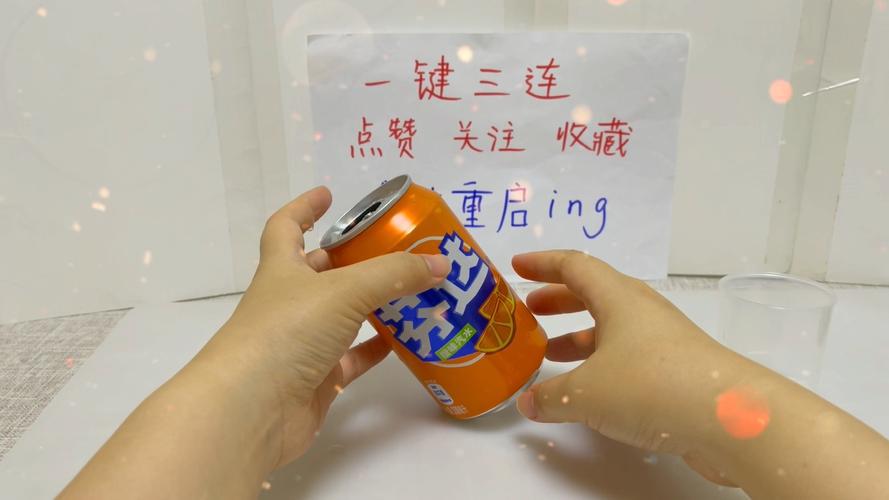 一键三连
点赞 关注 收藏
重启ing
芬达
橙味汽水